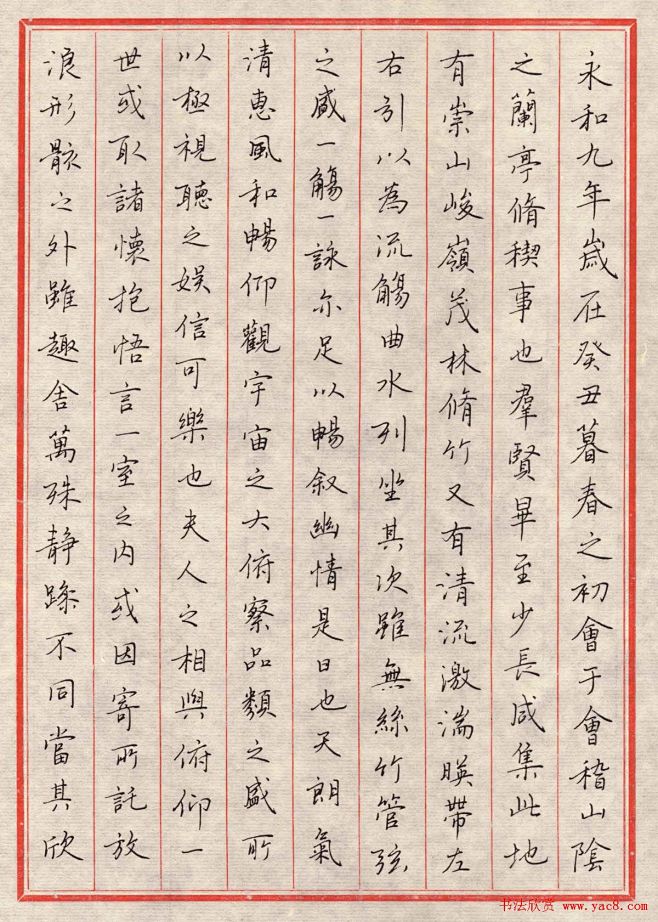 永和九年歲在癸丑暮春之初會于會稽山陰
之蘭亭脩稧事也羣賢畢至少長咸集此地
有崇山峻嶺茂林脩竹又有清流激湍暎帶左
右引以為流觴曲水列坐其次雖無絲竹管弦
之盛一觴一詠亦足以暢叙幽情是日也天朗氣
清惠風和暢仰觀宇宙之大俯察品類之盛所
以極視聽之娛信可樂也夫人之相與俯仰一
世或取諸懷抱悟言一室之內或因寄所託放
浪形骸之外雖趣舍萬殊静躁不同當其欣
书法欣赏 www.yac8.com